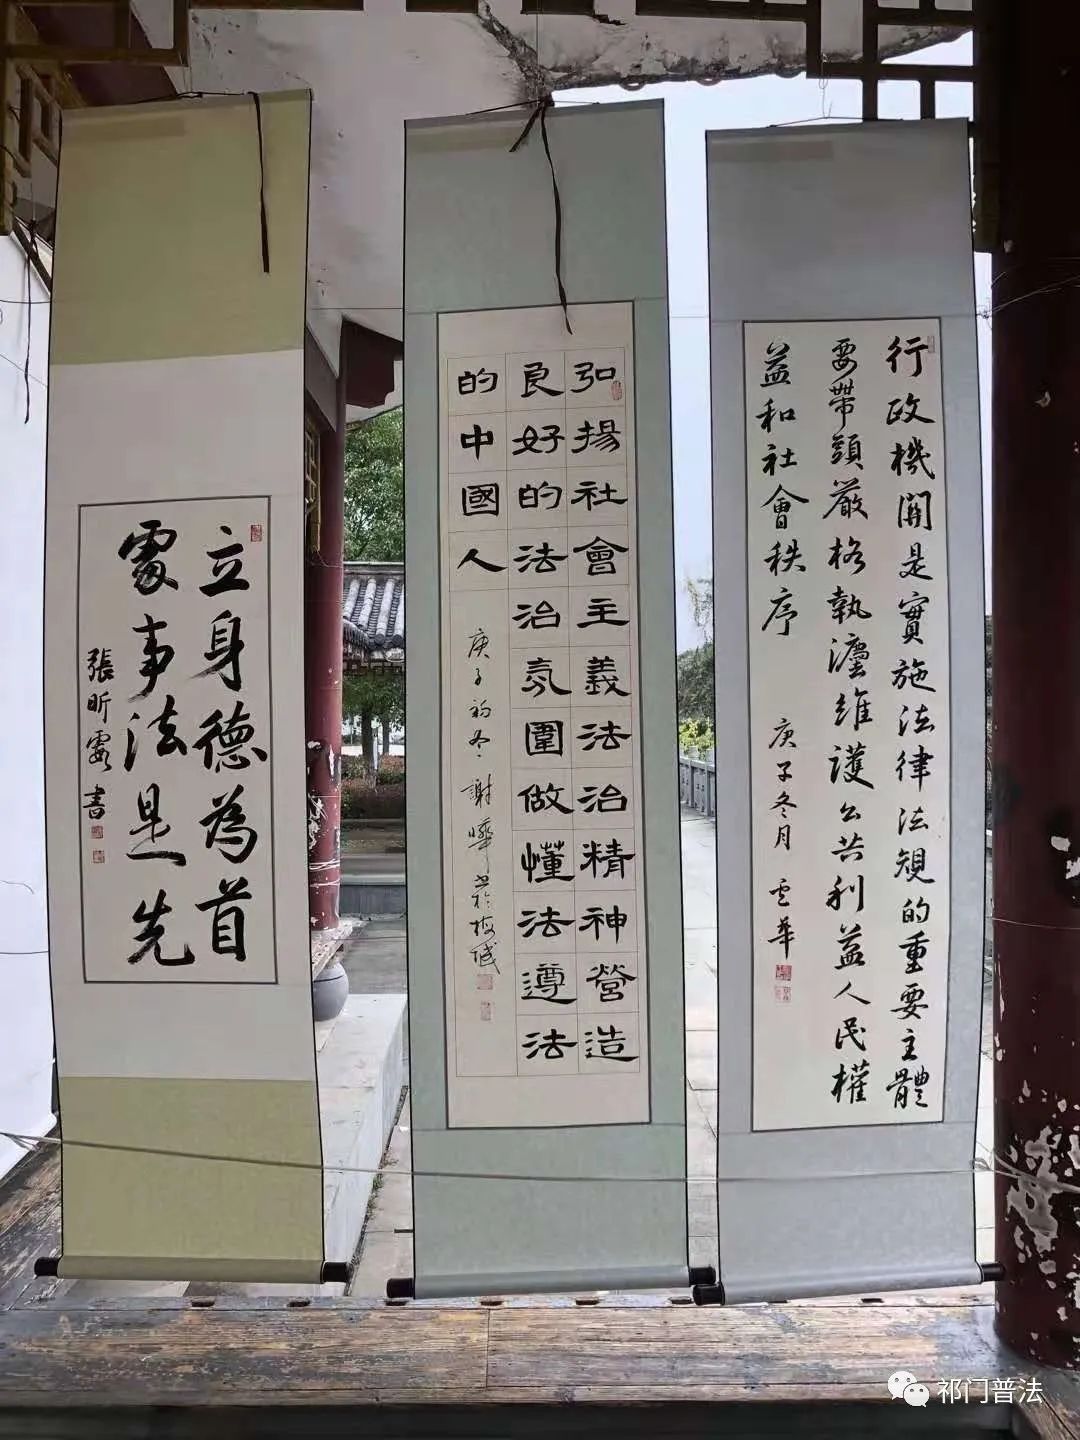 行政機關是實施法律法規的重要主體
要帶頭嚴格執灋維護公共利益人民權
益和社會秩序 庚子冬月 云華
弘揚社會主義法治精神營造
良好的法治氛圍做懂法遵法
的中國人 庚子初冬 謝曄书於梅城
立身德為首
處事法是先
張昕霞書
祁门普法